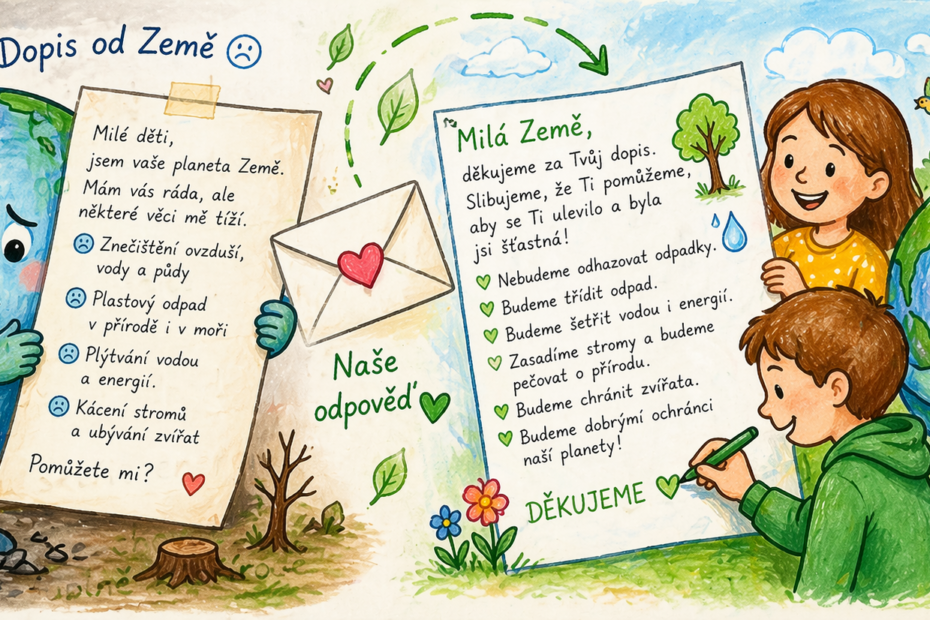 Dopis od Země
Milé děti,
jsem vaše planeta Země.
Mám vás ráda, ale
některé věci mě tíží.
Znečištění ovzduší,
vody a půdy
Plastový odpad
v přírodě i v moři
Plýtvání vodou
a energií.
Kácení stromů
a ubývání zvířat
Pomůžete mi?
Naše
odpověď
Milá Země,
děkujeme za Tvůj dopis.
Slibujeme, že Ti pomůžeme,
aby se Ti ulevilo a byla
jsi šťastná!
Nebudeme odhazovat odpadky.
Budeme třídit odpad.
Budeme šetřit vodou i energií.
Zasadíme stromy a budeme
pečovat o přírodu.
Budeme chránit zvířata.
Budeme dobrými ochránci
naší planety!
DĚKUJEME